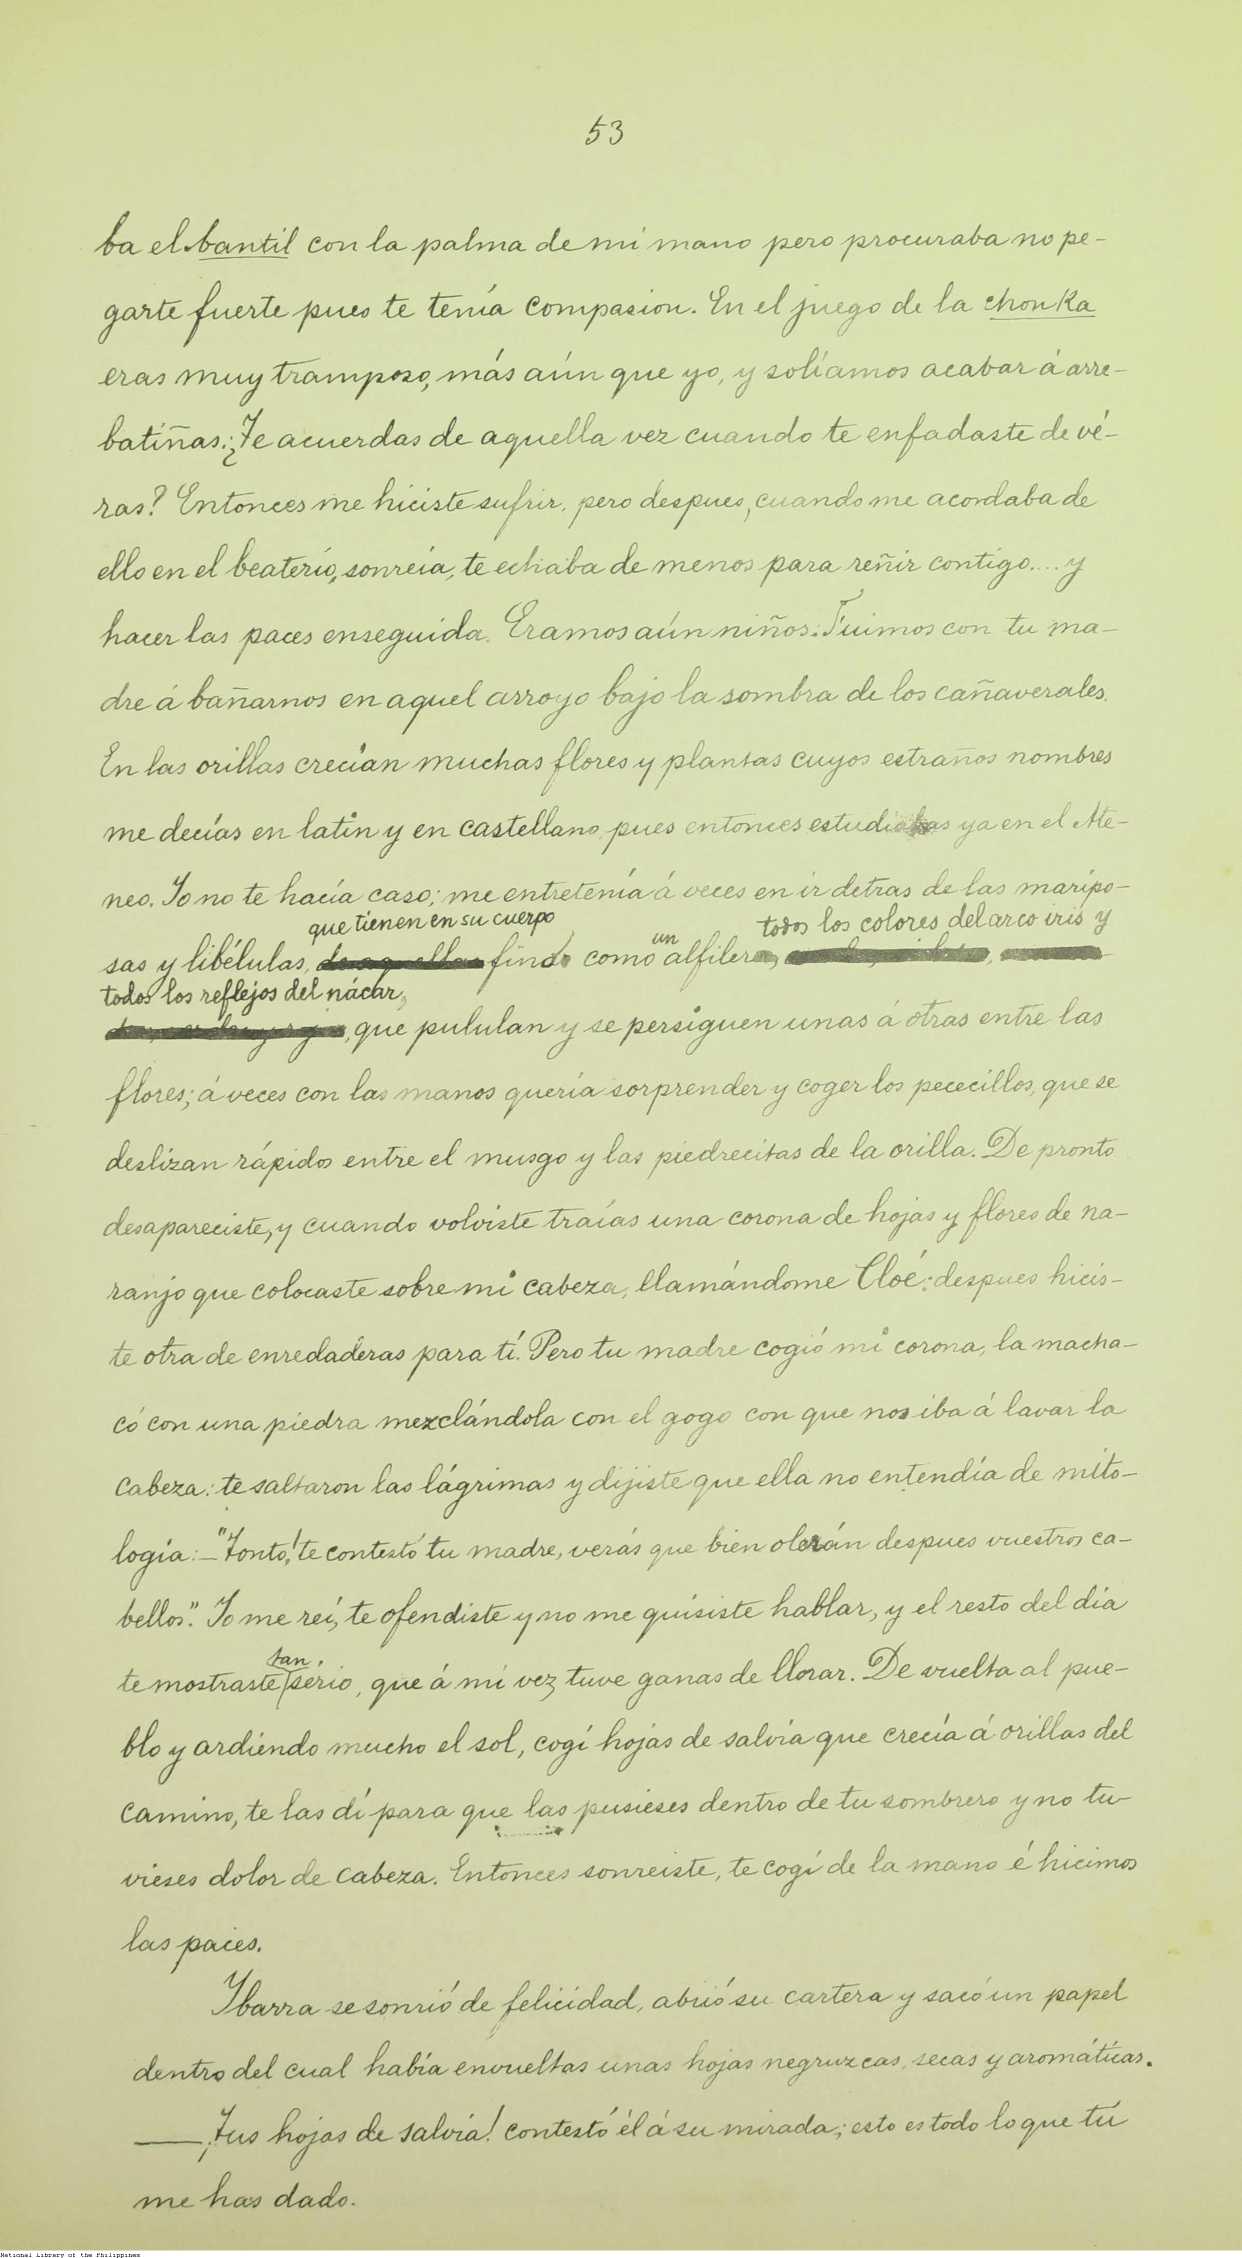 53
ba el bantil con la palma de mi mano pero procuraba no pe-
garte fuerte pues te tenía compasion. En el juego de la chonka
eras muy tramposo, más aún que yo, y solíamos acabar á arre-
batiñas. ¿Te acuerdas de aquella vez cuando te enfadaste de vé-
ras? Entonces me hiciste sufrir, pero despues, cuando me acordaba de
ello en el beaterio, sonreía, te echaba de menos para reñir contigo.... y
hacer las paces enseguida. Eramos aún niños: Fuimos con tu ma-
dre á bañarnos en aquel arroyo bajo la sombra de los cañaverales.
En las orillas crecían muchas flores y plantas cuyos estraños nombres
me decías en latin y en castellano, pues entonces estudiabas ya en el Ate-
neo. Yo no te hacía caso; me entretenía á veces en ir detras de las maripo-
que tienen en su cuerpo un todos los colores del arco iris y
sas y libélulas, fino como alfiler,
todos los reflejos del nácar,
que pululan y se persiguen unas á otras entre las
flores; á veces con las manos quería sorprender y coger los pececillos, que se
deslizan rápidos entre el musgo y las piedrecitas de la orilla. De pronto
desapareciste, y cuando volviste traías una corona de hojas y flores de na-
ranjo que colocaste sobre mi cabeza, llamándome Cloé: despues hicis-
te otra de enredaderas para tí. Pero tu madre cogió mi corona, la macha-
có con una piedra mezclándola con el gogo con que nos iba á lavar la
cabeza: te saltaron las lágrimas y dijiste que ella no entendía de mito-
logía: — "Tonto! te contestó tu madre, verás que bien olerán despues vuestros ca-
bellos". Yo me reí, te ofendiste y no me quisiste hablar, y el resto del dia
tan
te mostraste serio, que á mi vez tuve ganas de llorar. De vuelta al pue-
blo y ardiendo mucho el sol, cogí hojas de salvia que crecía á orillas del
camino, te las dí para que las pusieses dentro de tu sombrero y no tu-
vieses dolor de cabeza. Entonces sonreiste, te cogí de la mano é hicimos
las paces.
Ybarra se sonrió de felicidad, abrió su cartera y sacó un papel
dentro del cual había envueltas unas hojas negruzcas, secas y aromáticas.
— ¡Tus hojas de salvia! contestó él á su mirada; esto es todo lo que tú
me has dado.
National Library of the Philippines